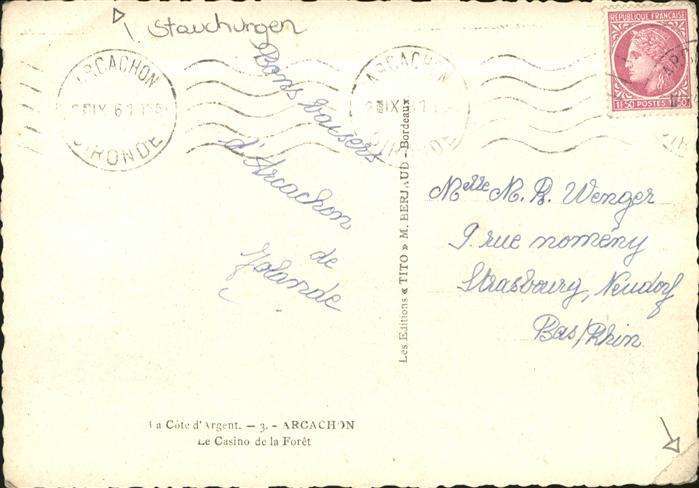 Stauchungen
ARCACHON
GIRONDE
ARCACHON
GIRONDE
REPUBLIQUE FRANÇAISE
1F50 POSTES 1F50
Bons baisers
d'Arcachon
de
Yolande
Les Editions « TITO » M. BERJAUD - Bordeaux
Melle M. R. Wenger
9 rue nomény
Strasbourg, Neudorf
Bas/Rhin
La Côte d'Argent. — 3. - ARCACHON
Le Casino de la Forêt